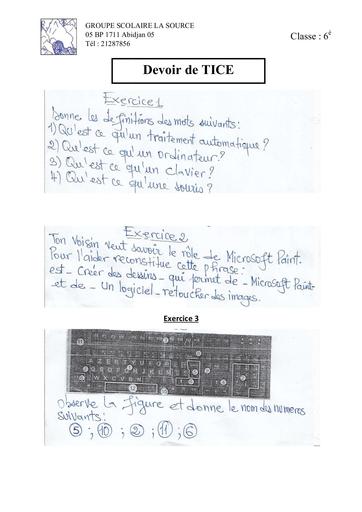 GROUPE SCOLAIRE LA SOURCE
05 BP 1711 Abidjan 05
Tél : 21287856
Classe : 6è
Devoir de TICE
Exercice 1
Donne les définitions des mots suivants:
1) Qu'est ce qu'un traitement automatique?
2) Qu'est ce qu'un ordinateur?
3) Qu'est ce qu'un clavier?
4) Qu'est ce qu'une souris?
Exercice 2
Ton voisin veut savoir le rôle de Microsoft Paint.
Pour l'aider reconstitue cette phrase:
est - Créer des dessins - qui permet de - Microsoft Paint
et de - Un logiciel - retoucher des images.
Exercice 3
Observe la figure et donne le nom des numeros
suivants:
5 ; 10 ; 2 ; 11 ; 6